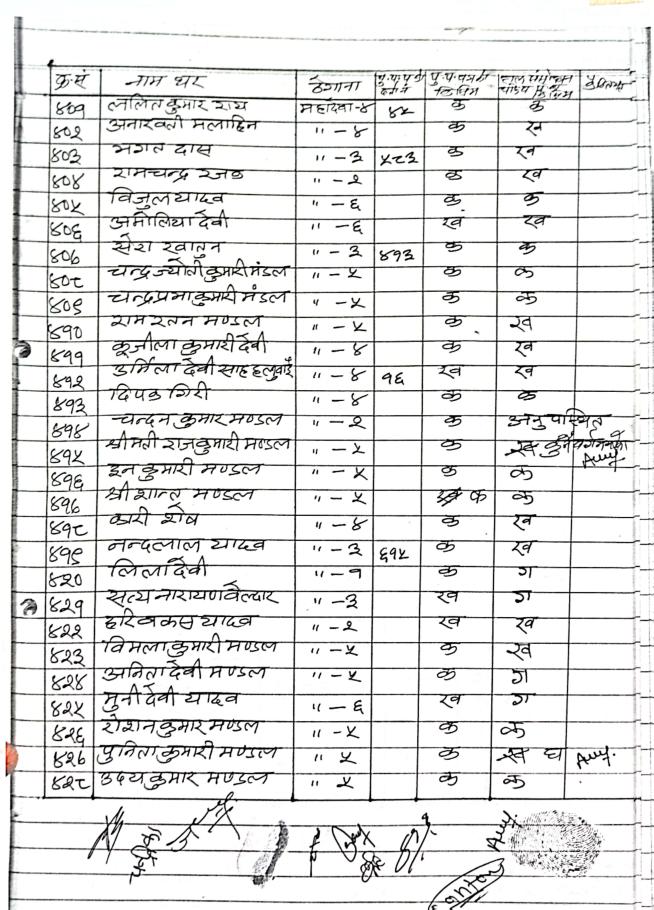 क्र.सं नाम थर ठेगाना पु.प.प.नं पु.प.पत्रमा कैफियत
४०१ ललित कुमार राय महदेवा-४ ४५ क क
४०२ अनारवती मलाहिन " - ४ क ख
४०३ भगत दास " - ३ ५८३ क ख
४०४ रामचन्द्र रजक " - २ क ख
४०५ विजुल यादव " - ६ क क
४०६ अमोलिया देवी " - ६ ख ख
४०७ सेरा खातुन " - ३ ४१३ क क
४०८ चन्द्रज्योती कुमारी मंडल " - ५ क क
४०९ चन्द्रप्रभा कुमारी मंडल " - ५ क क
४१० राम रतन मण्डल " - ५ क ख
४११ कूजीला कुमारी देवी " - ४ क ख
४१२ उर्मिला देवी साह हलुवाई " - ४ १६ ख ख
४१३ दिपक गिरी " - ४ क क
४१४ चन्दन कुमार मण्डल " - २ क अनुपास्थित
४१५ श्रीमती राजकुमारी मण्डल " - ५ क ख
४१६ इन कुमारी मण्डल " - ५ क क
४१७ श्री शान्त मण्डल " - ५ क क
४१८ कारी शेष " - ४ क ख
४१९ नन्दलाल यादव " - ३ ६१५ क ख
४२० लिला देवी " - १ क ग
४२१ सत्य नारायण वेल्दार " - ३ ख ग
४२२ हरिवकस यादव " - २ ख ख
४२३ विमला कुमारी मण्डल " - ५ क ख
४२४ अनिता देवी मण्डल " - ५ क ग
४२५ मुनी देवी यादव " - ६ ख ग
४२६ रोशन कुमार मण्डल " - ५ क क
४२७ पुनिता कुमारी मण्डल " ५ क ख घ
४२८ उदय कुमार मण्डल " ५ क क